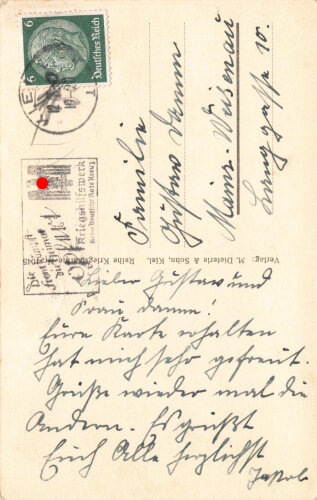 6
Deutsches Reich
6
Kriegshilfswerk
für das Deutsche Rote Kreuz
Familie
Gustav Damm
Mainz-Weisenau
Langgasse 10.
Verlag: M. Dieterle & Sohn, Kiel.
Reihe Kriegsmarine Nr. 1045
Lieber Gustav und
Frau Damm!
Eure Karte erhalten
hat mich sehr gefreut.
Grüße wieder mal die
Andern. Es grüßt
Euch Alle herzlichst
Jakob